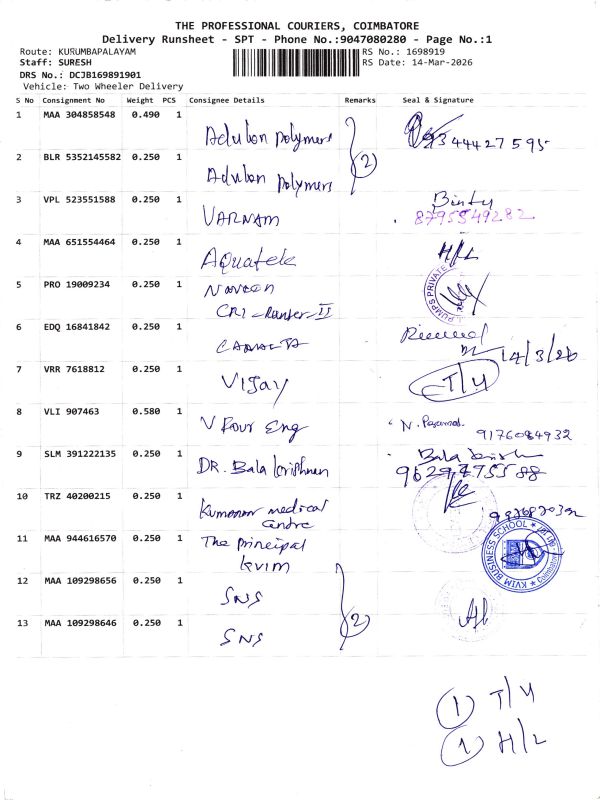 THE PROFESSIONAL COURIERS, COIMBATORE
Delivery Runsheet - SPT - Phone No.:9047080280 - Page No.:1
Route: KURUMBAPALAYAM RS No.: 1698919
Staff: SURESH RS Date: 14-Mar-2026
DRS No.: DCJB169891901
Vehicle: Two Wheeler Delivery
S No Consignment No Weight PCS Consignee Details Remarks Seal & Signature
1 MAA 304858548 0.490 1 Adulon polymers 9344427595
2 BLR 5352145582 0.250 1 Adulon polymers 2
3 VPL 523551588 0.250 1 VARNAM Binty
8795549282
4 MAA 651554464 0.250 1 Aquatek H/L
5 PRO 19009234 0.250 1 Naveen
CRI - II
PUMPS PRIVATE
6 EDQ 16841842 0.250 1 14/3/26
7 VRR 7618812 0.250 1 Vijay T/4
8 VLI 907463 0.580 1 V Four Eng N.
9176084932
9 SLM 391222135 0.250 1 DR. Bala krishnan Bala
10 TRZ 40200215 0.250 1 Kumaran medical
centre
11 MAA 944616570 0.250 1 The principal
KVIM
KVIM BUSINESS SCHOOL
12 MAA 109298656 0.250 1 SNS
13 MAA 109298646 0.250 1 SNS 2
1 T/4
1 H/L